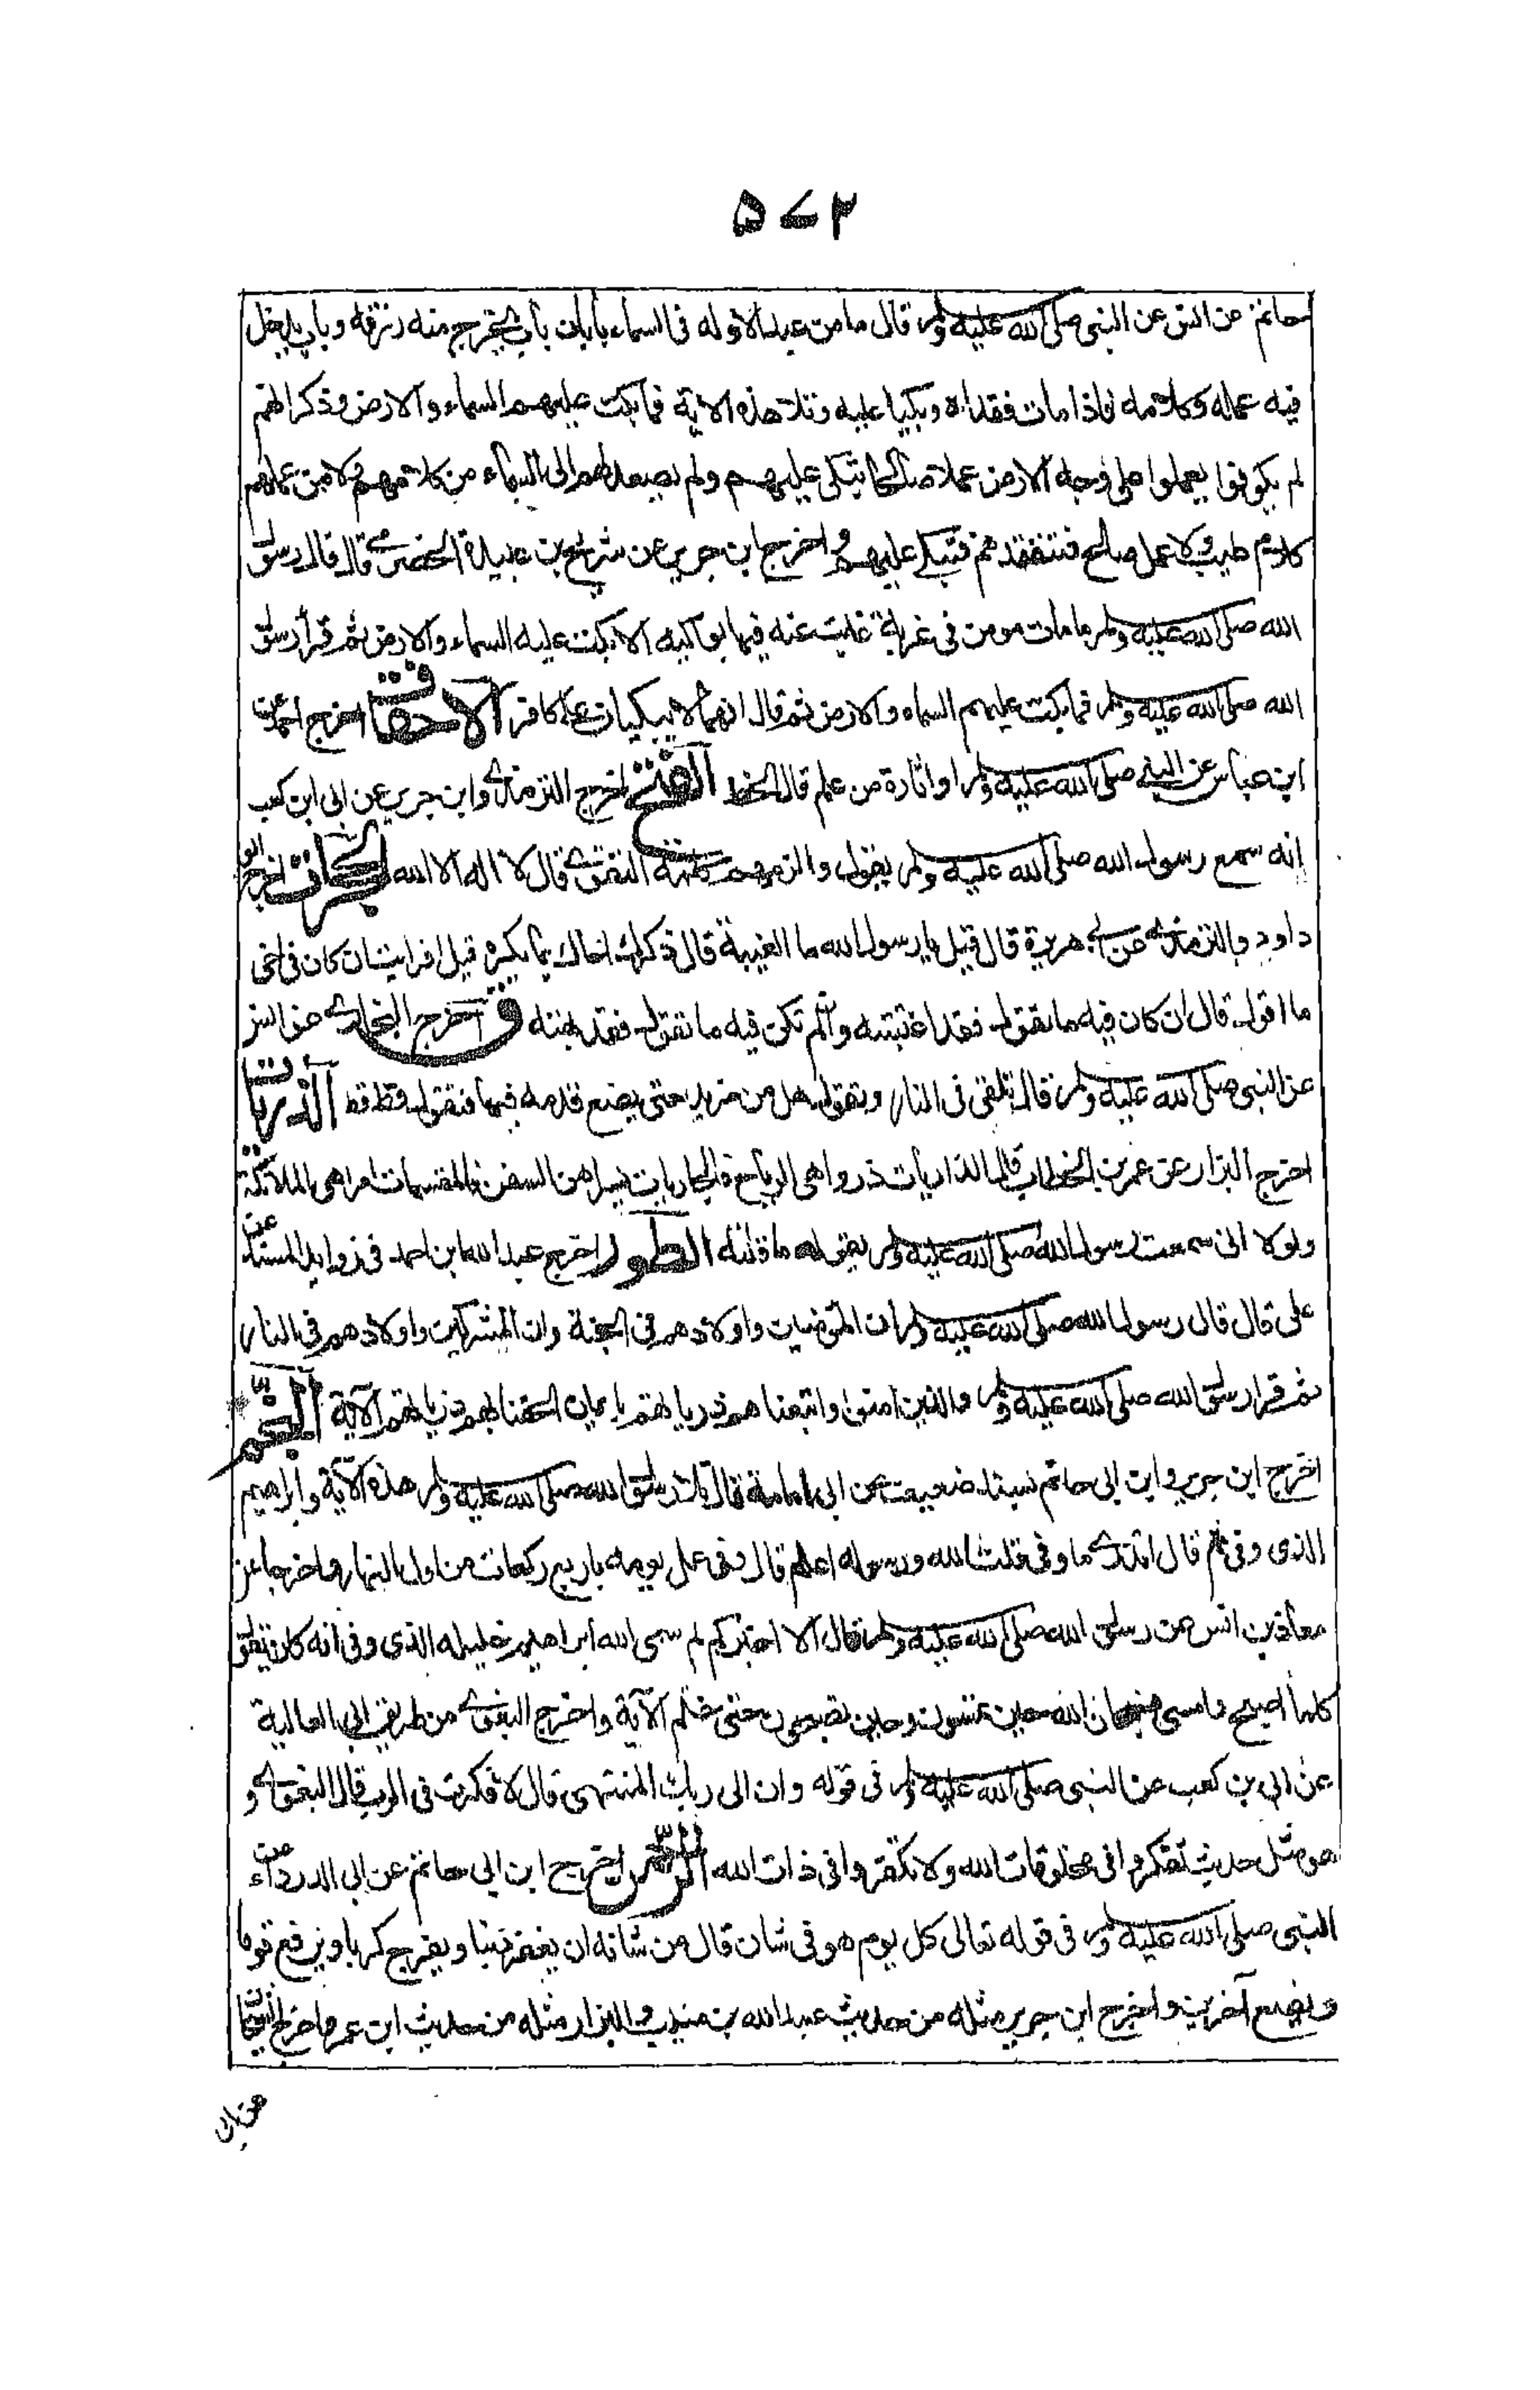 ۵۷۲
حاتم عن انس عن النبى صلى الله عليه وسلم قال ما من عبد الا وله فى السماء بابان باب يخرج منه رزقه وباب يدخل
فيه عمله وكلامه فاذا مات فقداه وبكيا عليه وتلا هذه الاية فما بكت عليهم السماء والارض وذكر انهم
لم يكونوا يعملوا على وجه الارض عملا صالحا تبكى عليهم ولم يصعد لهم الى السماء من كلامهم ولا من عملهم
كلام طيب ولا عمل صالح فتفقدهم فتبكى عليهم واخرج ابن جرير عن شريح بن عبيدة الحضرمى قال قال رسول
الله صلى الله عليه وسلم ما مات مومن فى غربة غابت عنه فيها بواكيه الا بكت عليه السماء والارض ثم قرأ رسول
الله صلى الله عليه وسلم فما بكت عليهم السماء والارض ثم قال انهما لا يبكيان على كافر الاحقاف اخرج احمد عن
ابن عباس عن النبى صلى الله عليه وسلم او اثارة من علم قال الخط الفتح اخرج الترمذى وابن جرير عن ابى ابن كعب
انه سمع رسول الله صلى الله عليه وسلم يقول والزمهم كلمة التقوى قال لا اله الا الله الحجرات اخرج ابو
داود والترمذى عن ابى هريرة قال قيل يا رسول الله ما الغيبة قال ذكرك اخاك بما يكره قيل افرايت ان كان فى اخى
ما اقول قال ان كان فيه ما تقول فقد اغتبته وان لم تكن فيه ما تقول فقد بهته ق اخرج البخارى عن انس
عن النبى صلى الله عليه وسلم قال تلقى فى النار وتقول هل من مزيد حتى يضع قدمه فيها فتقول قط قط الذريات
اخرج البزار عن عمر بن الخطاب قال الذاريات ذروا هى الرياح فالجاريات يسرا هن السفن فالمقسمات امرا هى الملائكة
ولولا انى سمعت رسول الله صلى الله عليه وسلم يقوله ما قلته الطور اخرج عبد الله ابن احمد فى زوايد المسند عن
على قال قال رسول الله صلى الله عليه وسلم ان المؤمنين واولادهم فى الجنة وان المشركين واولادهم فى النار
ثم قرا رسول الله صلى الله عليه وسلم والذين امنوا واتبعناهم ذرياتهم بايمان الحقنا بهم ذرياتهم الآية النجم
اخرج ابن جرير وابن ابى حاتم بسند ضعيف عن ابى امامة قال تلا رسول الله صلى الله عليه وسلم هذه الآية وابراهيم
الذى وفى ثم قال اتدرى ما وفى قلت الله ورسوله اعلم قال وفى عمل يومه باربع ركعات من اول النهار واخرجا عن
معاذ بن انس عن رسول الله صلى الله عليه وسلم قال الا اخبركم لم سمى الله ابراهيم خليله الذى وفى انه كان يقول
كلما اصبح وامسى فسبحان الله حين تمسون وحين تصبحون حتى ختم الآية واخرج البغوى من طريق ابى العالية
عن ابى بن كعب عن النبى صلى الله عليه وسلم فى قوله وان الى ربك المنتهى قال لا فكرة فى الرب قال البغوى و
هو مثل حديث تفكروا فى مخلوقات الله ولا تكفروا فى ذات الله الرحمن اخرج ابن ابى حاتم عن ابى الدرداء عن
النبى صلى الله عليه وسلم فى قوله تعالى كل يوم هو فى شان قال من شانه ان يغفر ذنبا ويفرج كربا ويرفع قوما
ويضع آخرين واخرج ابن جرير مثله من حديث عبد الله بن منيب والبزار مثله من حديث ابن عمر واخرج الشيخان
عن ابى